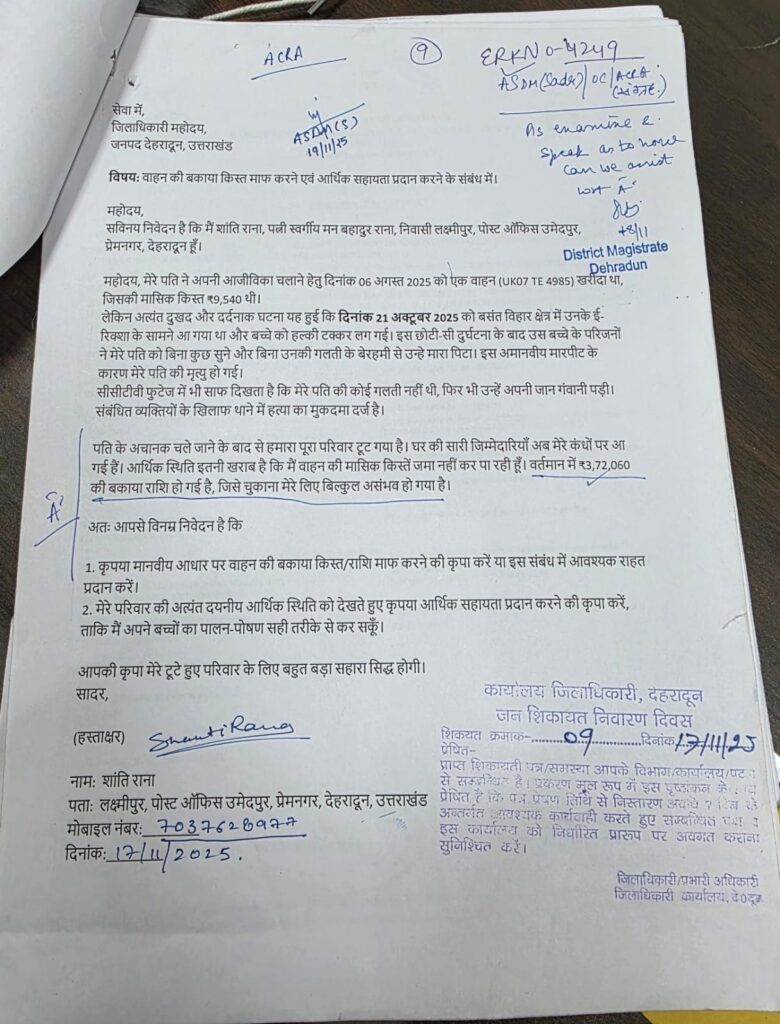 ACRA
9
ERK NO-4249
ASDM(Sadr)/OC/ACRA
(संग्रह.)
ASDM(S)
19/11/25
As examine &
speak as to how
can we assist
wrt 'A'
18/11
District Magistrate
Dehradun
सेवा में,
जिलाधिकारी महोदय,
जनपद देहरादून, उत्तराखंड
विषय: वाहन की बकाया किस्त माफ करने एवं आर्थिक सहायता प्रदान करने के संबंध में।
महोदय,
सविनय निवेदन है कि मैं शांति राना, पत्नी स्वर्गीय मन बहादुर राना, निवासी लक्ष्मीपुर, पोस्ट ऑफिस उमेदपुर,
प्रेमनगर, देहरादून हूँ।
महोदय, मेरे पति ने अपनी आजीविका चलाने हेतु दिनांक 06 अगस्त 2025 को एक वाहन (UK07 TE 4985) खरीदा था,
जिसकी मासिक किस्त ₹9,540 थी।
लेकिन अत्यंत दुखद और दर्दनाक घटना यह हुई कि दिनांक 21 अक्टूबर 2025 को बसंत विहार क्षेत्र में उनके ई-
रिक्शा के सामने आ गया था और बच्चे को हल्की टक्कर लग गई। इस छोटी-सी दुर्घटना के बाद उस बच्चे के परिजनों
ने मेरे पति को बिना कुछ सुने और बिना उनकी गलती के बेरहमी से उन्हे मारा पिटा। इस अमानवीय मारपीट के
कारण मेरे पति की मृत्यु हो गई।
सीसीटीवी फुटेज में भी साफ दिखता है कि मेरे पति की कोई गलती नहीं थी, फिर भी उन्हें अपनी जान गंवानी पड़ी।
संबंधित व्यक्तियों के खिलाफ थाने में हत्या का मुकदमा दर्ज है।
पति के अचानक चले जाने के बाद से हमारा पूरा परिवार टूट गया है। घर की सारी जिम्मेदारियाँ अब मेरे कंधों पर आ
गई हैं। आर्थिक स्थिति इतनी खराब है कि मैं वाहन की मासिक किस्तें जमा नहीं कर पा रही हूँ। वर्तमान में ₹3,72,060
की बकाया राशि हो गई है, जिसे चुकाना मेरे लिए बिल्कुल असंभव हो गया है।
'A'
अतः आपसे विनम्र निवेदन है कि
1. कृपया मानवीय आधार पर वाहन की बकाया किस्त/राशि माफ करने की कृपा करें या इस संबंध में आवश्यक राहत
प्रदान करें।
2. मेरे परिवार की अत्यंत दयनीय आर्थिक स्थिति को देखते हुए कृपया आर्थिक सहायता प्रदान करने की कृपा करें,
ताकि मैं अपने बच्चों का पालन-पोषण सही तरीके से कर सकूँ।
आपकी कृपा मेरे टूटे हुए परिवार के लिए बहुत बड़ा सहारा सिद्ध होगी।
सादर,
(हस्ताक्षर) Shanti Rana
नाम: शांति राना
पता: लक्ष्मीपुर, पोस्ट ऑफिस उमेदपुर, प्रेमनगर, देहरादून, उत्तराखंड
मोबाइल नंबर: 7037628977
दिनांक: 17/11/2025.
कार्यालय जिलाधिकारी, देहरादून
जन शिकायत निवारण दिवस
शिकयत क्रमाक-.........09..............दिनांक 17/11/25
प्रेषित-
प्राप्त शिकायती पत्र/समस्या आपके विभाग/कार्यालय/पटल
से सम्बन्धित है। प्रकरण मूल रूप में इस पृष्ठांकन के
प्रेषित है कि पत्र प्रेषण तिथि से निस्तारण अवधि
अन्तर्गत आवश्यक कार्यवाही करते हुए सम्बन्धित
इस कार्यालय को निर्धारित प्रारूप पर अवगत कराना
सुनिश्चित करें।
जिलाधिकारी/प्रभारी अधिकारी
जिलाधिकारी कार्यालय, दे०दून